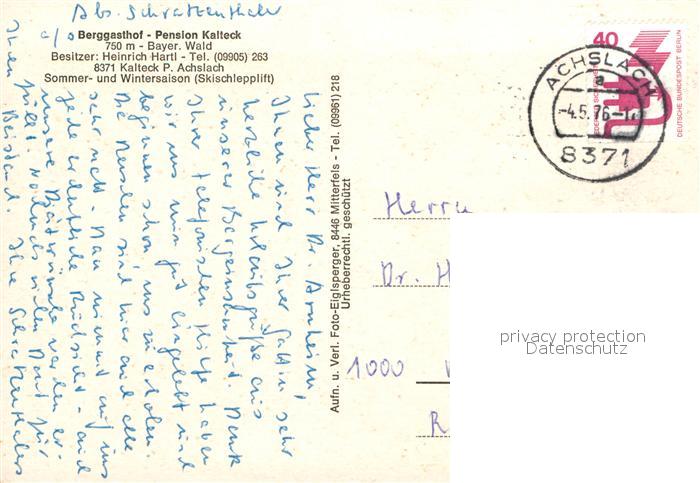 Abs. Schratzenthaler
c/o Berggasthof - Pension Kalteck
750 m - Bayer. Wald
Besitzer: Heinrich Hartl - Tel. (09905) 263
8371 Kalteck P. Achslach
Sommer- und Wintersaison (Skischlepplift)
Lieber Herr Dr. Arnheim,
Ihnen und Ihrer Gattin sehr
herzliche Urlaubsgrüße aus
unserer Bergeinsamkeit. Dank
Ihrer telefonischen Hilfe haben
wir uns nun gut eingelebt und
beginnen schon uns zu erholen.
Die Menschen sind hier auch alle
sehr nett. Man nimmt auf uns
jede erdenkliche Rücksicht - auch
unsere Diätwünsche werden er-
füllt. Nochmals vielen Dank für
Ihren Beistand. Ihre Schratzenthalers
Aufn. u. Verl. Foto-Eiglsperger, 8446 Mitterfels - Tel. (09961) 218
Urheberrechtl. geschützt
40
DEUTSCHE BUNDESPOST BERLIN
ACHSLACH
a
-4.5.76-17
8371
Herrn
Dr. H
1000
R
privacy protection
Datenschutz